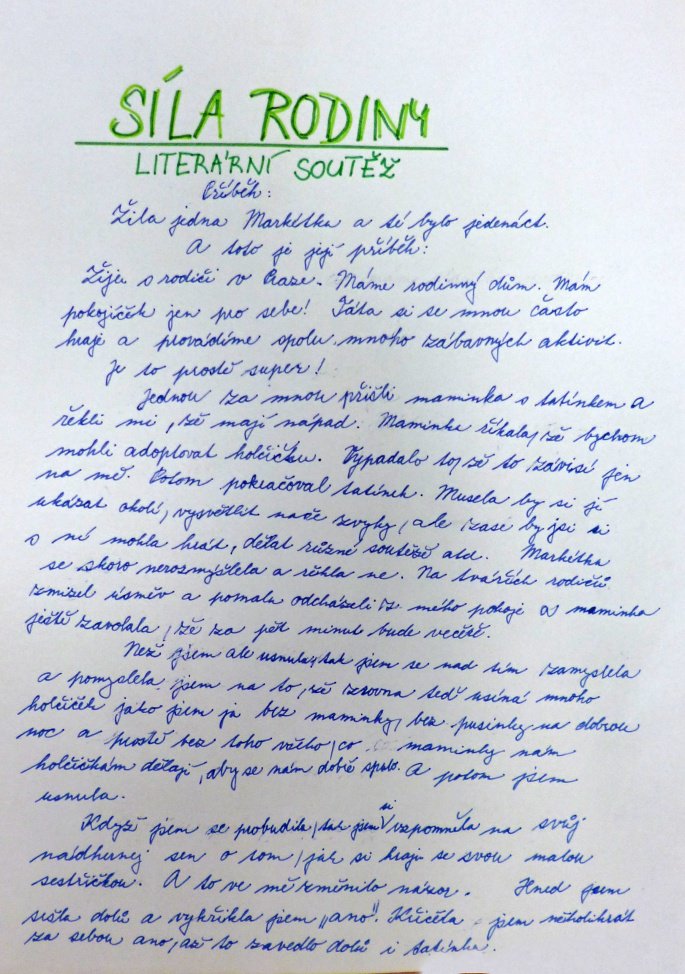 SÍLA RODINY
LITERÁRNÍ SOUTĚŽ
Příběh:
Žila jedna Markétka a té bylo jedenáct.
A toto je její příběh:
Žiju s rodiči v Praze. Máme rodinný dům. Mám
pokojíček jen pro sebe! Táta si se mnou často
hraje a provádíme spolu mnoho zábavných aktivit.
Je to prostě super!
Jednou za mnou přišli maminka s tatínkem a
řekli mi, že mají nápad. Maminka říkala, že bychom
mohli adoptovat holčičku. Vypadalo to, že to závisí jen
na mě. Potom pokračoval tatínek. Musela by si jí
ukázat okolí, vysvětlit naše zvyky, ale zase by jsi si
s ní mohla hrát, dělat různé soutěže atd. Markétka
se skoro nerozmýšlela a řekla ne. Na tvářích rodičů
zmizel úsměv a pomalu odcházeli z mého pokoje a maminka
ještě zavolala, že za pět minut bude večeře.
Než jsem ale usnula, tak jsem se nad tím zamyslela
a pomyslela jsem na to, že zrovna teď usíná mnoho
holčiček jako jsem já bez maminky, bez pusinky na dobrou
noc a prostě bez toho všeho, co maminky nám
holčičkám dělají, aby se nám dobře spalo. A potom jsem
usnula.
Když jsem se probudila, tak jsem si vzpomněla na svůj
nádhernej sen o tom, jak si hraju se svou malou
sestřičkou. A to ve mě změnilo názor. Hned jsem
sešla dolů a vykřikla jsem „ano". Křičela jsem několikrát
za sebou ano, až to zavedlo dolů i tatínka.